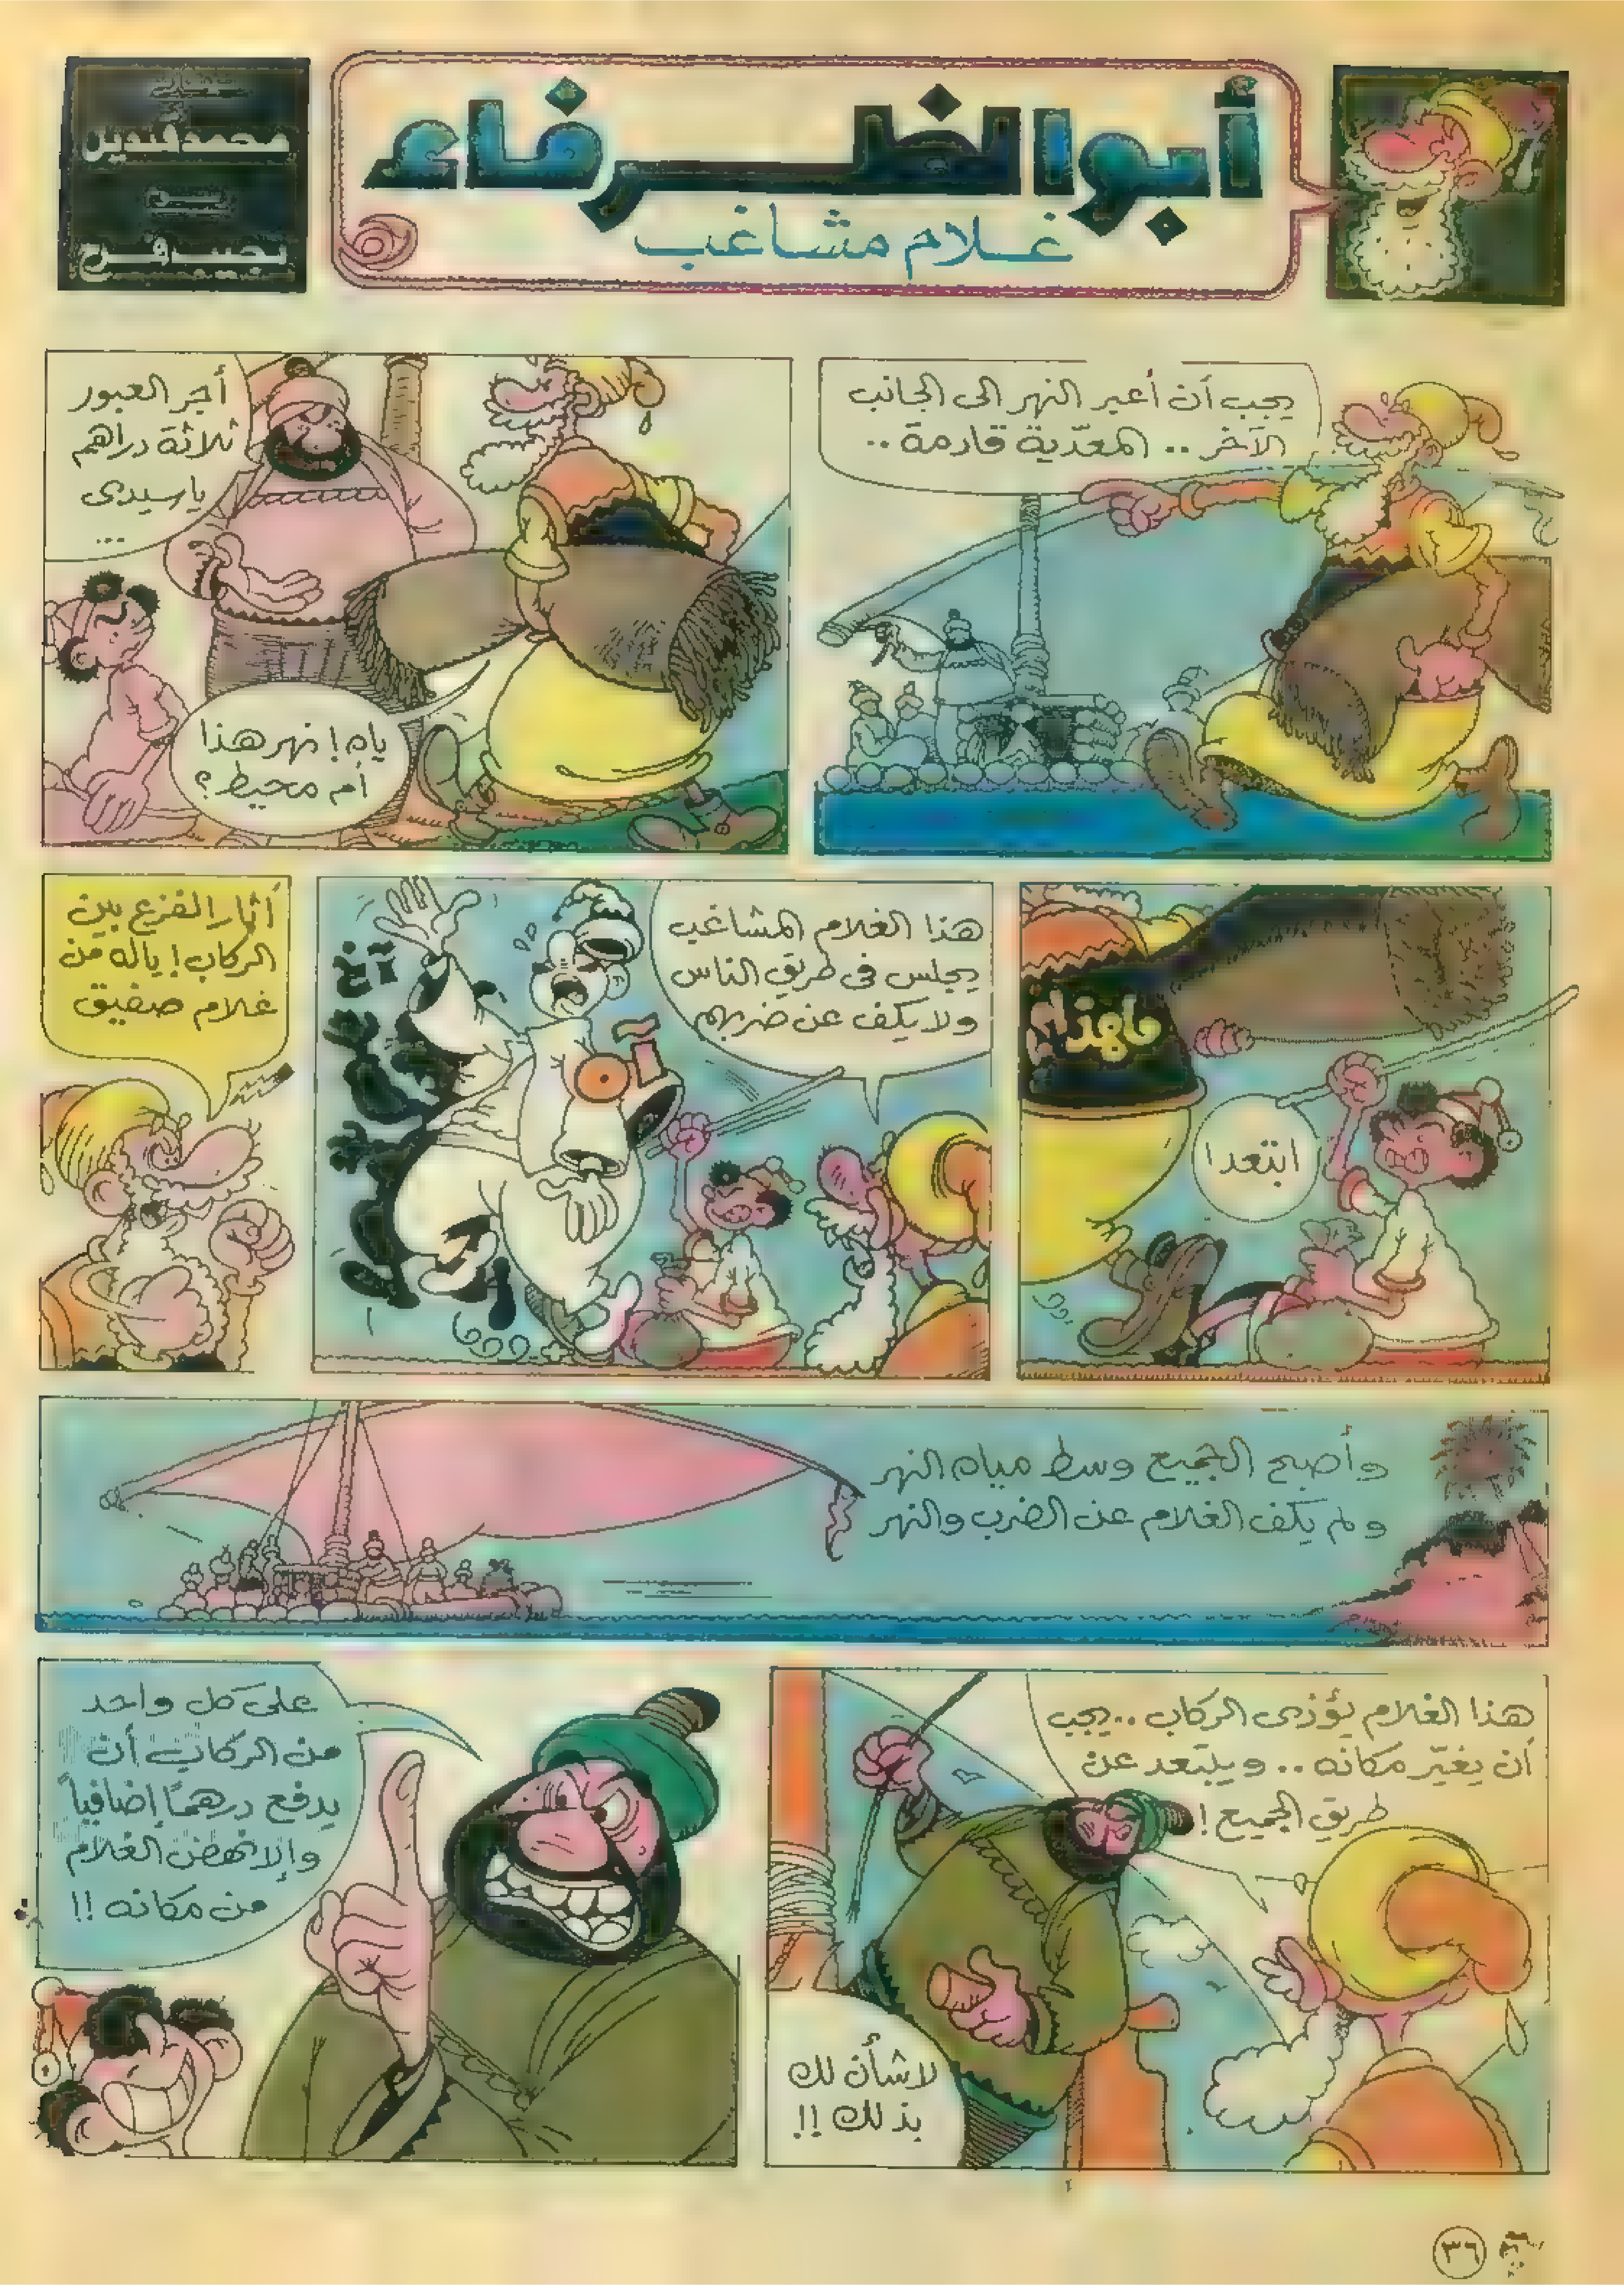 أبو الظرفاء
غلام مشاغب
محمد قنديل
نجيب فرح
يجب أن أعبر النهر الى الجانب
الآخر .. المعدّية قادمة ..
أجر العبور
ثلاثة دراهم
يا سيدى
...
ياه! نهر هذا
أم محيط؟
ما هذا!
ابتعد!
هذا الغلام المشاغب
يجلس فى طريق الناس
ولا يكف عن ضربهم
آخ
أثار الفزع بين
الركاب! ياله من
غلام صفيق
وأصبح الجميع وسط مياه النهر
ولم يكف الغلام عن الضرب والنهر
هذا الغلام يؤذى الركاب .. يجب
أن يغيّر مكانه .. ويبتعد عن
طريق الجميع!
لا شأن لك
بذلك!!
على كل واحد
من الركاب أن
يدفع درهمًا إضافياً
وإلا نهض الغلام
من مكانه!!
٣٦